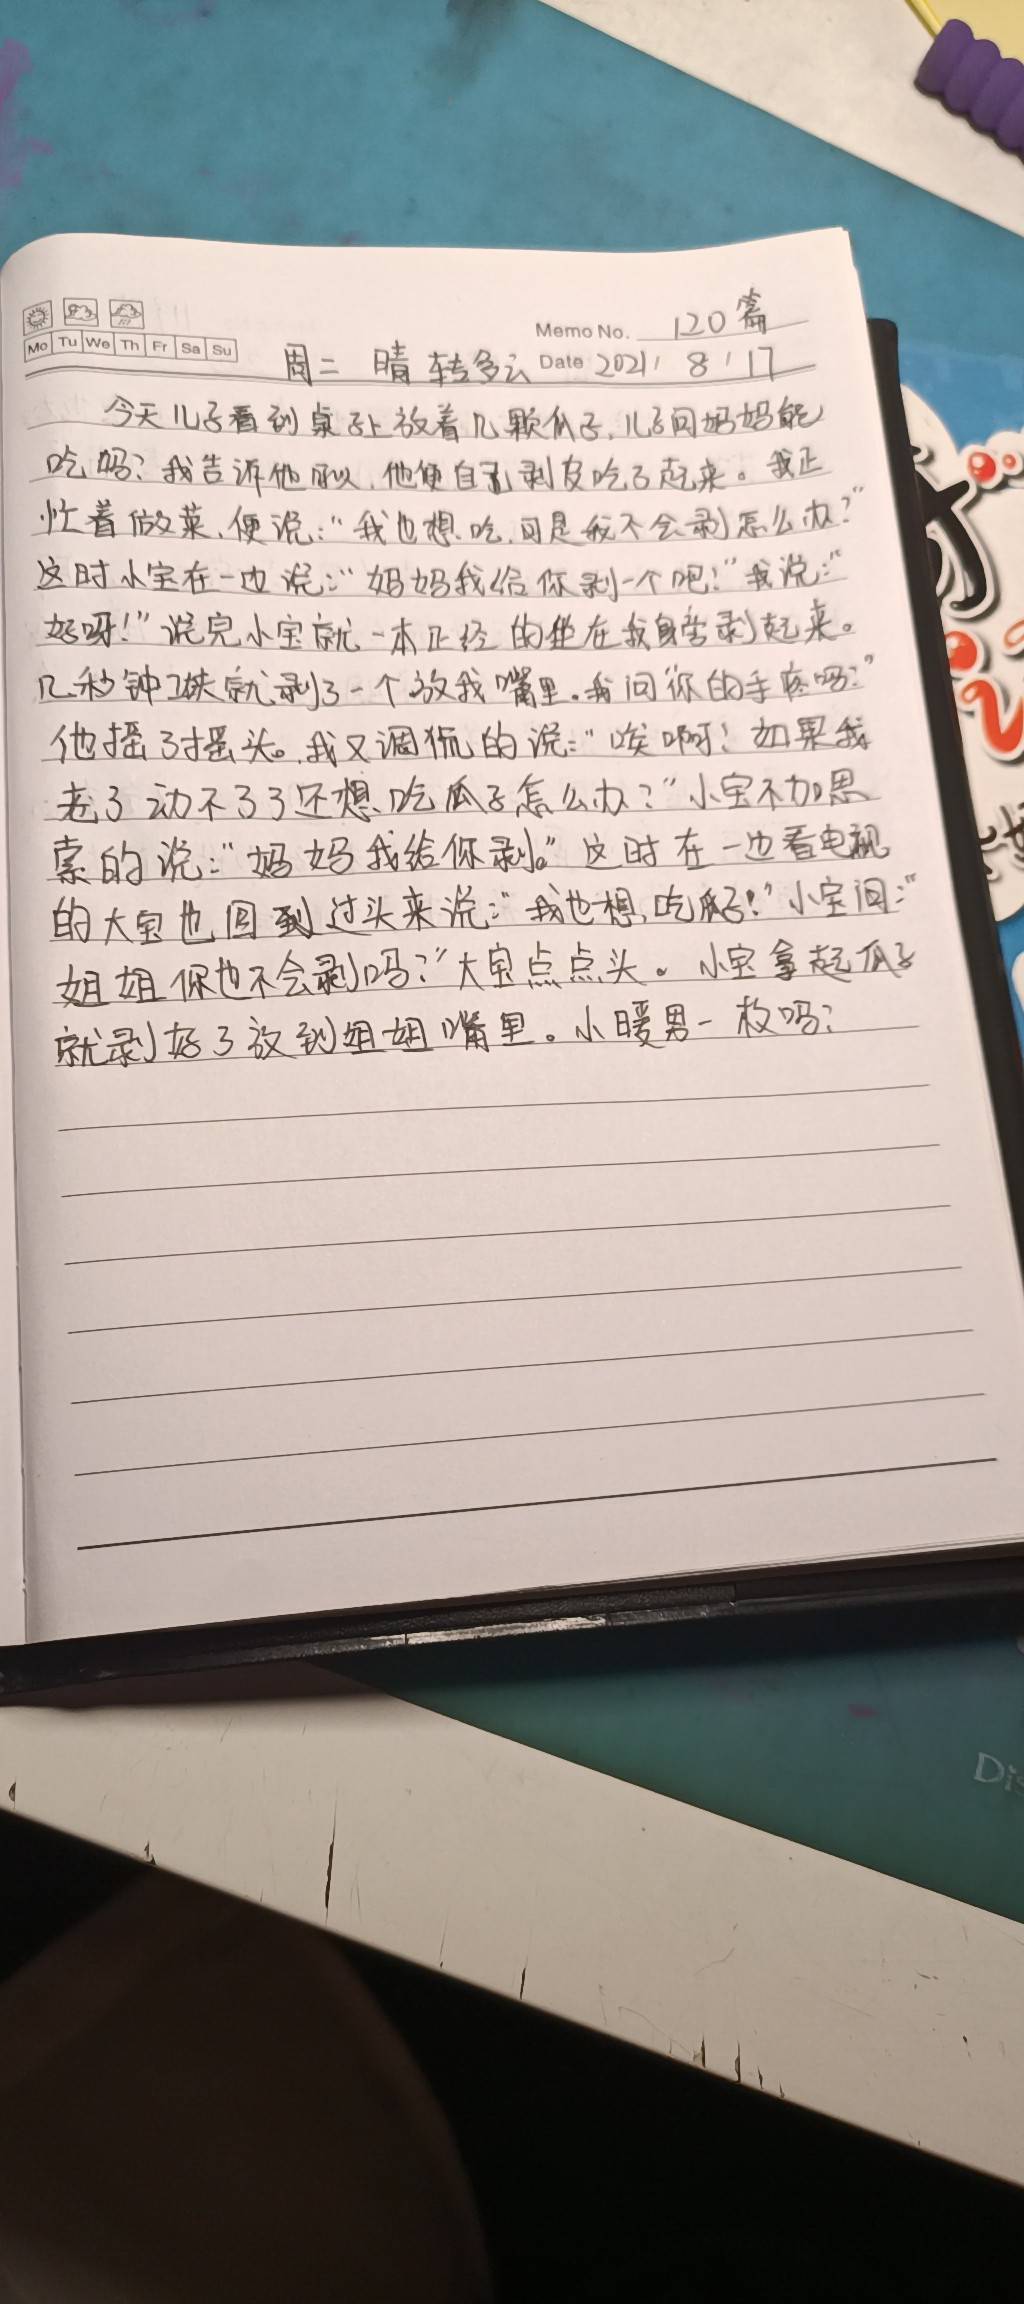 Memo No. 120篇
Mo Tu We Th Fr Sa Su
周二 晴转多云 Date 2021 / 8 / 17
今天儿子看到桌子上放着几颗瓜子,儿子问妈妈能
吃吗?我告诉他可以,他便自己剥皮吃了起来。我正
忙着做菜,便说:“我也想吃,可是我不会剥怎么办?”
这时小宝在一边说:“妈妈我给你剥一个吧!”我说:“
好呀!”说完小宝就一本正经的坐在我身旁剥起来。
几秒钟就剥了一个放我嘴里。我问“你的手疼吗?”
他摇了摇头。我又调侃的说:“唉啊!如果我
老了动不了了还想吃瓜子怎么办?”小宝不加思
索的说:“妈妈我给你剥。”这时在一边看电视
的大宝也回到过头来说:“我也想吃瓜子!”小宝问:“
姐姐你也不会剥吗?”大宝点点头。小宝拿起瓜子
就剥好了放到姐姐嘴里。小暖男一枚吗?
Dis